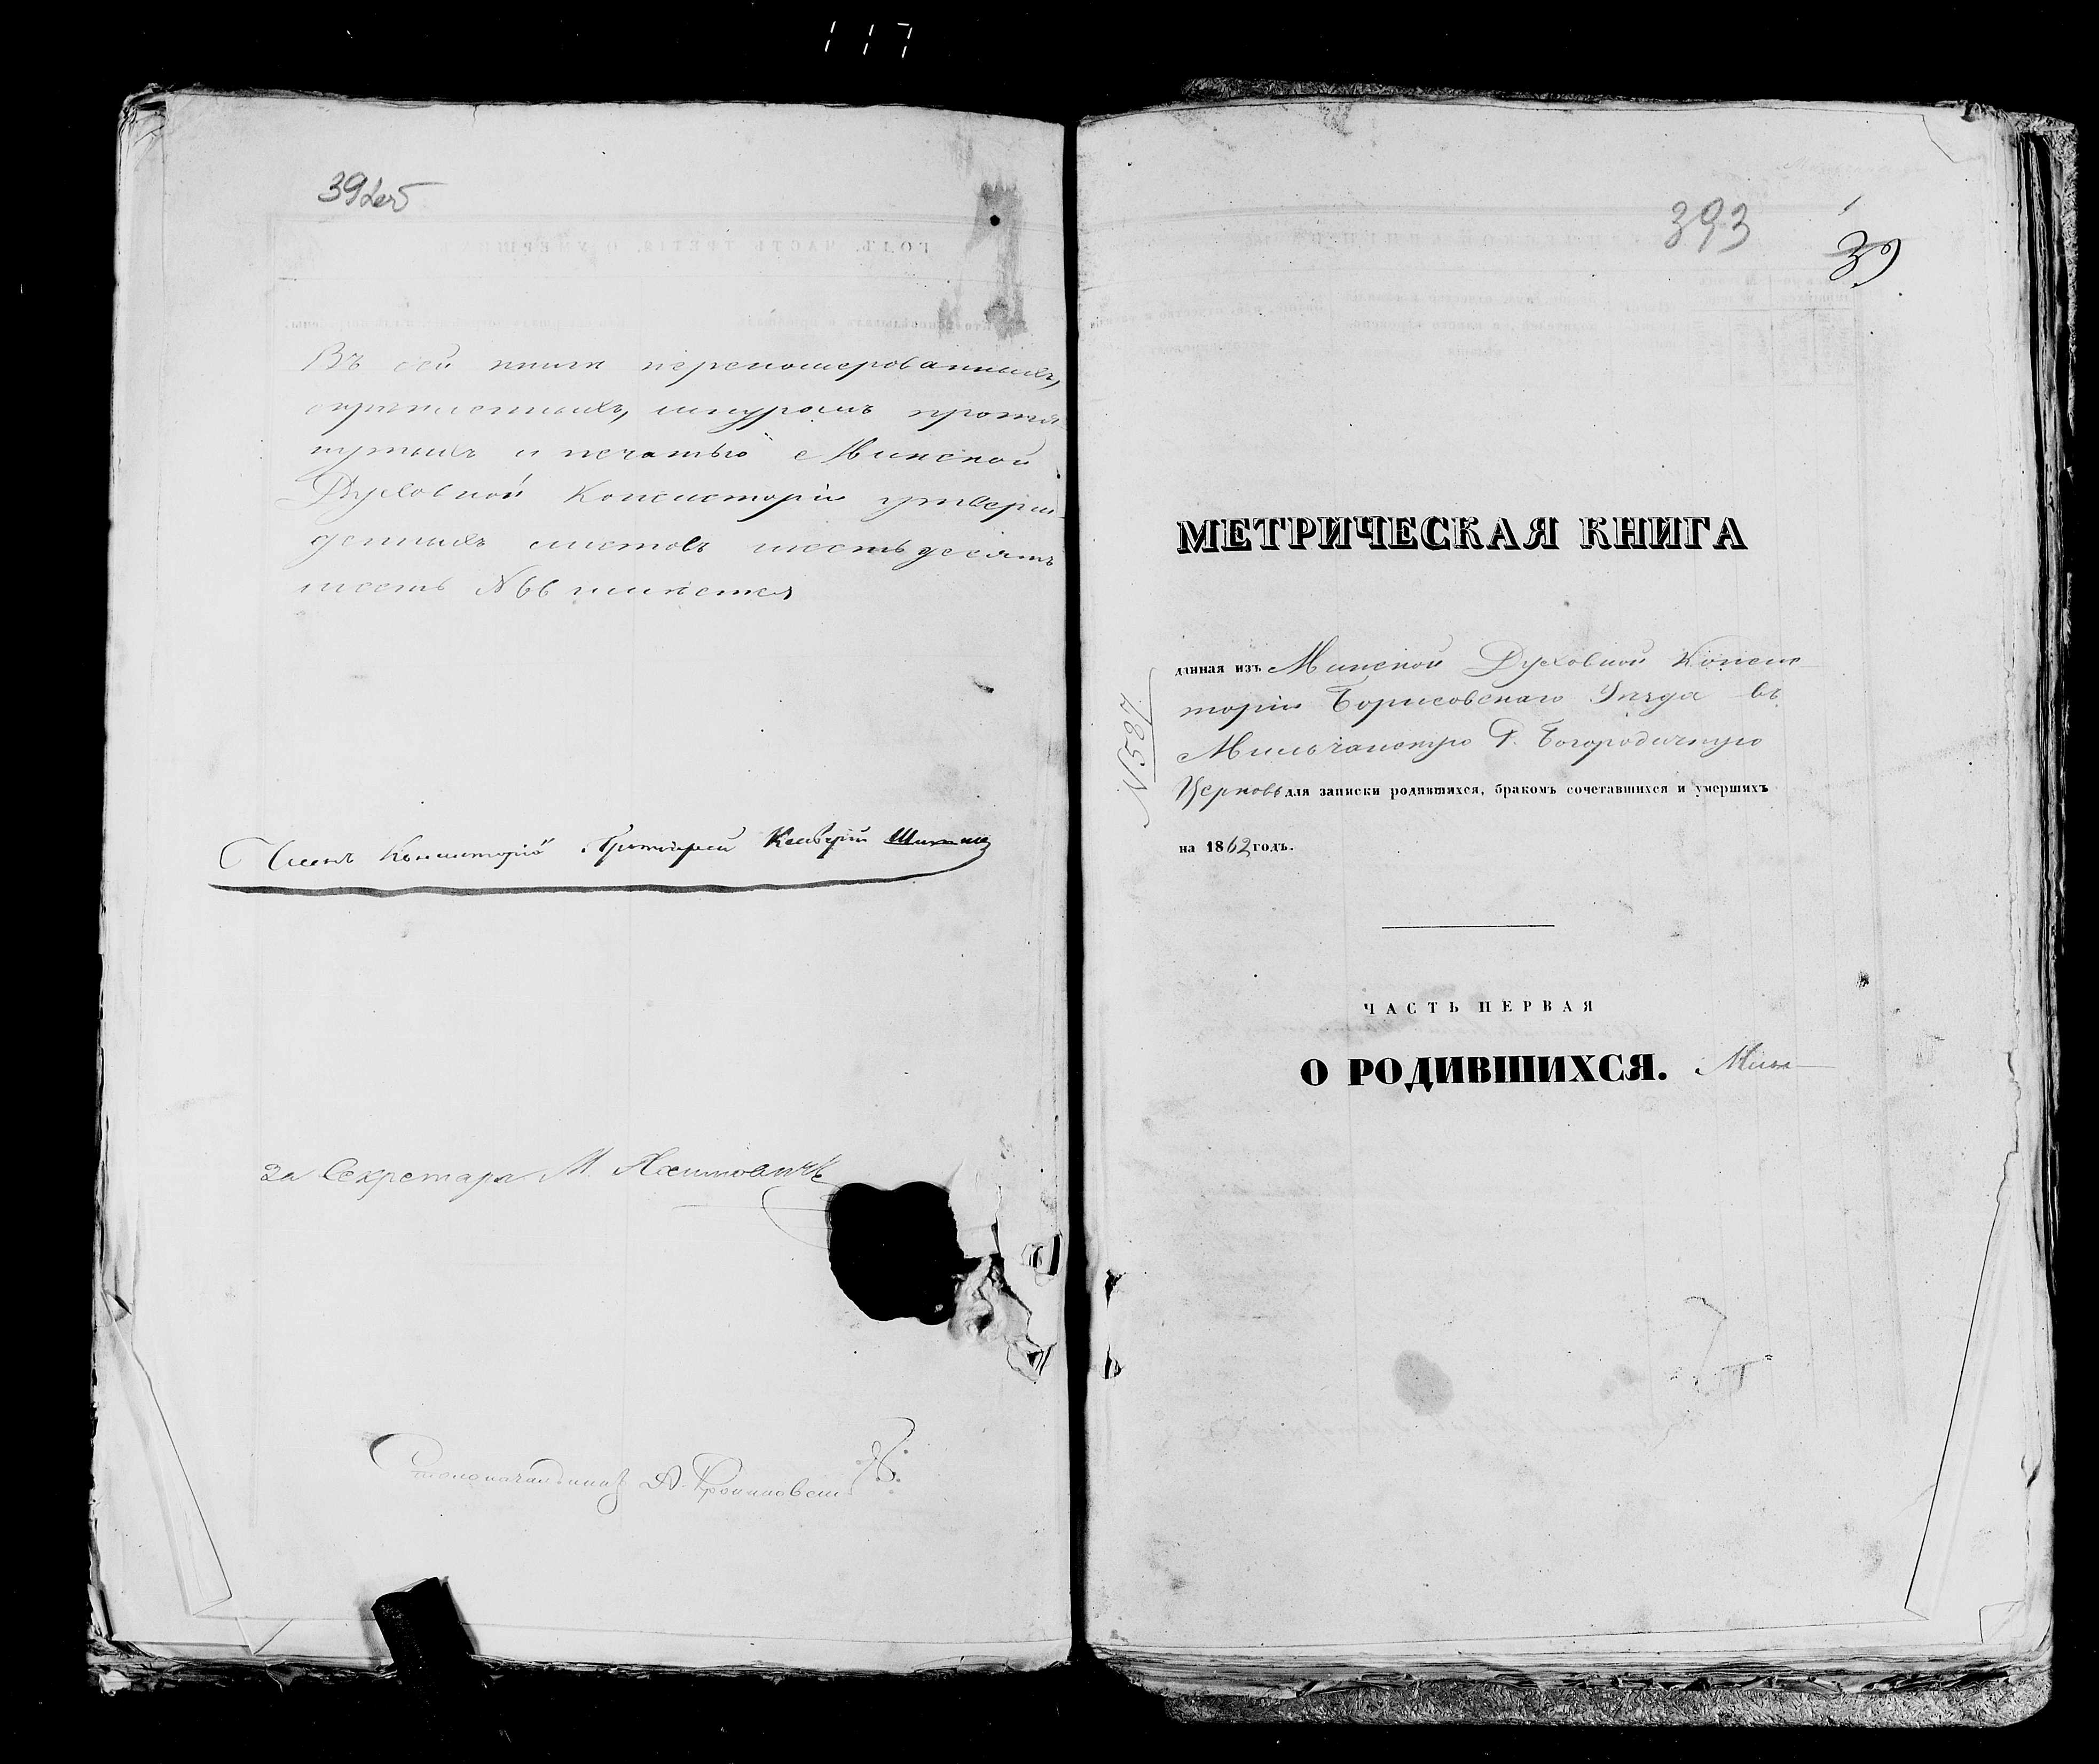 117
392об
Въ сей книгѣ перенумерованныхъ,
скрѣпленныхъ, шнуромъ протя-
нутыхъ и печатью Минской
Духовной Консисторіи утверж-
денныхъ листовъ шестьдесятъ
шесть №66 имѣется
Членъ Консисторіи Протоіерей
За Секретаря М.
Столоначальникъ А.
393
МЕТРИЧЕСКАЯ КНИГА
№587.
данная изъ Минской Духовной Консис
торіи Борисовскаго Уѣзда въ
Мильчанскую Р. Богородичную
Церковь для записки родившихся, бракомъ сочетавшихся и умершихъ
на 1862 годъ.
ЧАСТЬ ПЕРВАЯ
О РОДИВШИХСЯ.